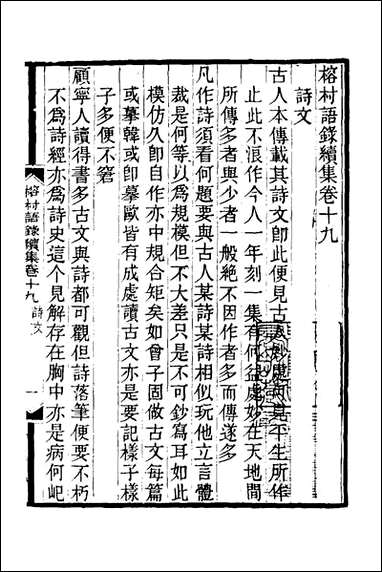 榕村語錄續集卷十九
詩文
古人本傳載其詩文即此便見古人妙處何嘗平生所作
止此不浪作今人一年刻一集有何益處妙在天地間
所傳多者與少者一般絶不因作者多而傳遂多
凡作詩須看何題要與古人某詩某詩相似玩他立言體
裁是何等以爲規模但不大差只是不可鈔寫耳如此
模仿久即自作亦中規合矩矣如曾子固做古文每篇
或摹韓或即摹歐皆有成處讀古文亦是要記樣子樣
子多便不窘
顧寧人讀得書多古文與詩都可觀但詩落筆便要不朽
不爲詩經亦爲詩史這個見解存在胸中亦是病何屺
榕村語錄續集卷十九 詩文 一